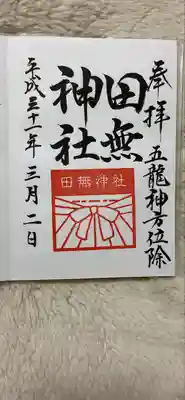 奉拝 五龍神方位除
田無
神社
田無神社
平成三十一年三月二日